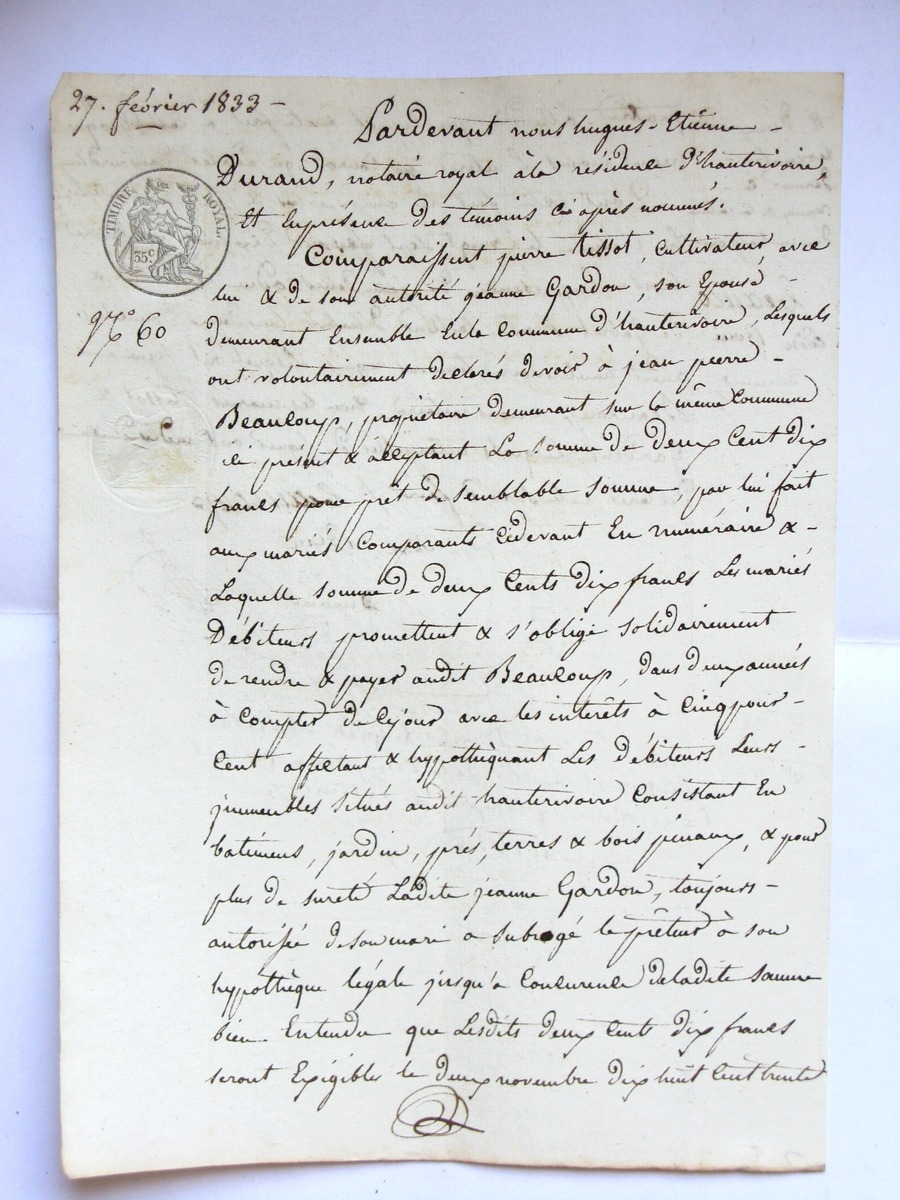 27. février 1833 -
Pardevant nous hugues-Etienne -
Durand, notaire royal à la résidence d'hauterivoire,
TIMBRE ROYAL.
35 c.
Et En présence des témoins cà après nommés.
Comparaissent pierre tissot, cultivateur, avec
lui & de son autorité jeanne Gardon, son Epouse -
N.° 60
demeurant Ensemble En la Commune d'hauterivoire, Lesquels
ont volontairement déclarés devoir à jean pierre -
Beauloup, propriétaire demeurant sur la même Commune
ici présent & acceptant La somme de deux Cent dix
francs pour prêt de semblable somme, par lui fait
aux mariés Comparants Cidevant En numéraire & -
Laquelle somme de deux Cents dix francs Les mariés
Débiteurs promettent & s'oblige solidairement
de rendre & payer audit Beauloup, dans deux années
à Compter de Cejour avec les intérêts à Cinq pour -
Cent affectant & hypothéquant Les Débiteurs Leurs -
jmmeubles situés audit hauterivoire Consistant En
batimens, jardin, prés, terres & bois pinaux, & pour
plus de sureté Ladite jeanne Gardon, toujours -
autorisée de son mari a subrogé le prêteur à son
hypothèque légale jusqu'à Concurence deladite somme
bien Entendu que Lesdits deux Cent dix francs
seront Exigibles le deux novembre dix huit Cent trente